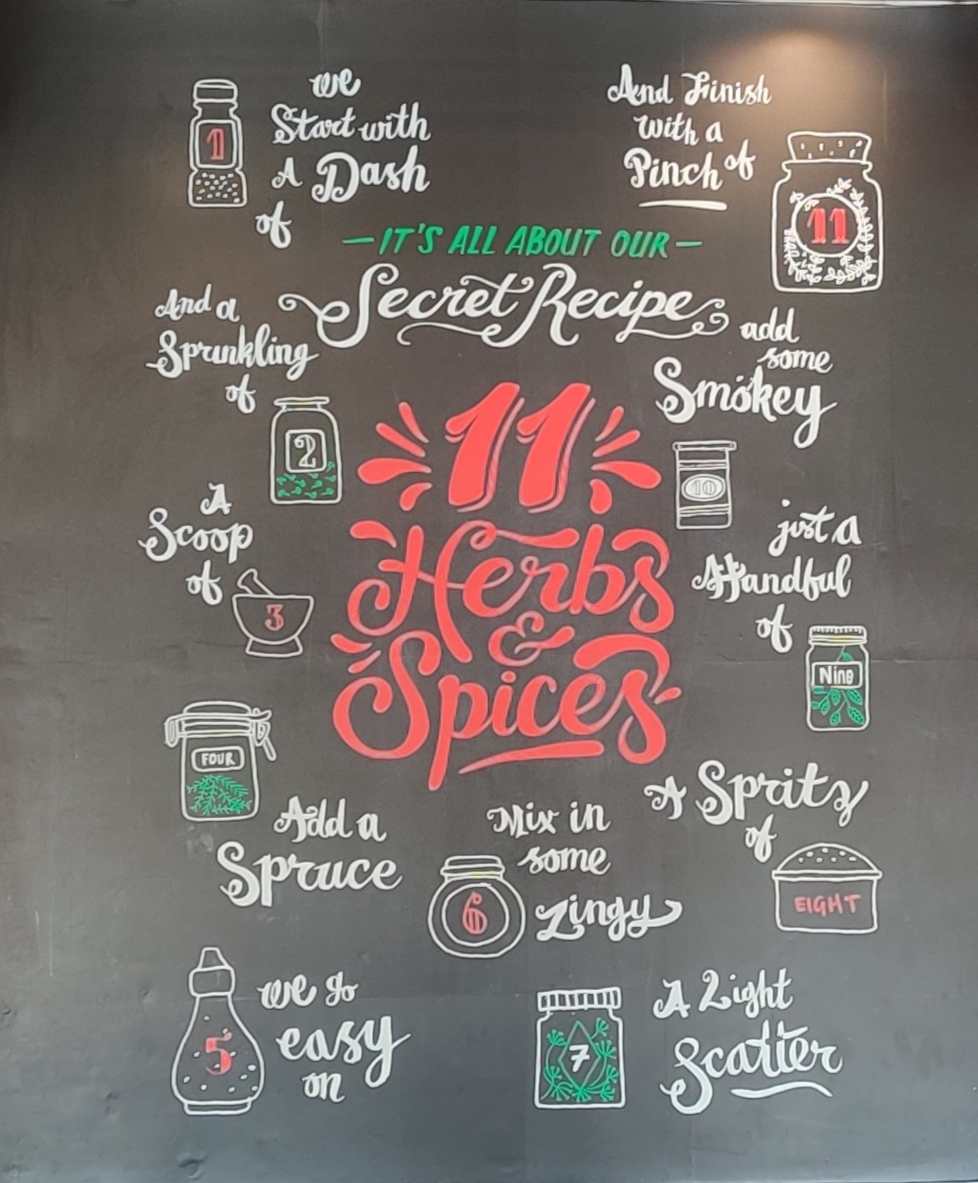 we
Start with
A Dash
of
1
And a
Sprinkling
of
2
A
Scoop
of
3
FOUR
Add a
Spruce
5
we go
easy
on
— IT'S ALL ABOUT OUR —
Secret Recipe
11
Herbs
&
Spices
Mix in
some
zingy
6
7
A Light
Scatter
A Spritz
of
EIGHT
just a
Handful
of
Nine
add
some
Smokey
10
And Finish
with a
Pinch of
11